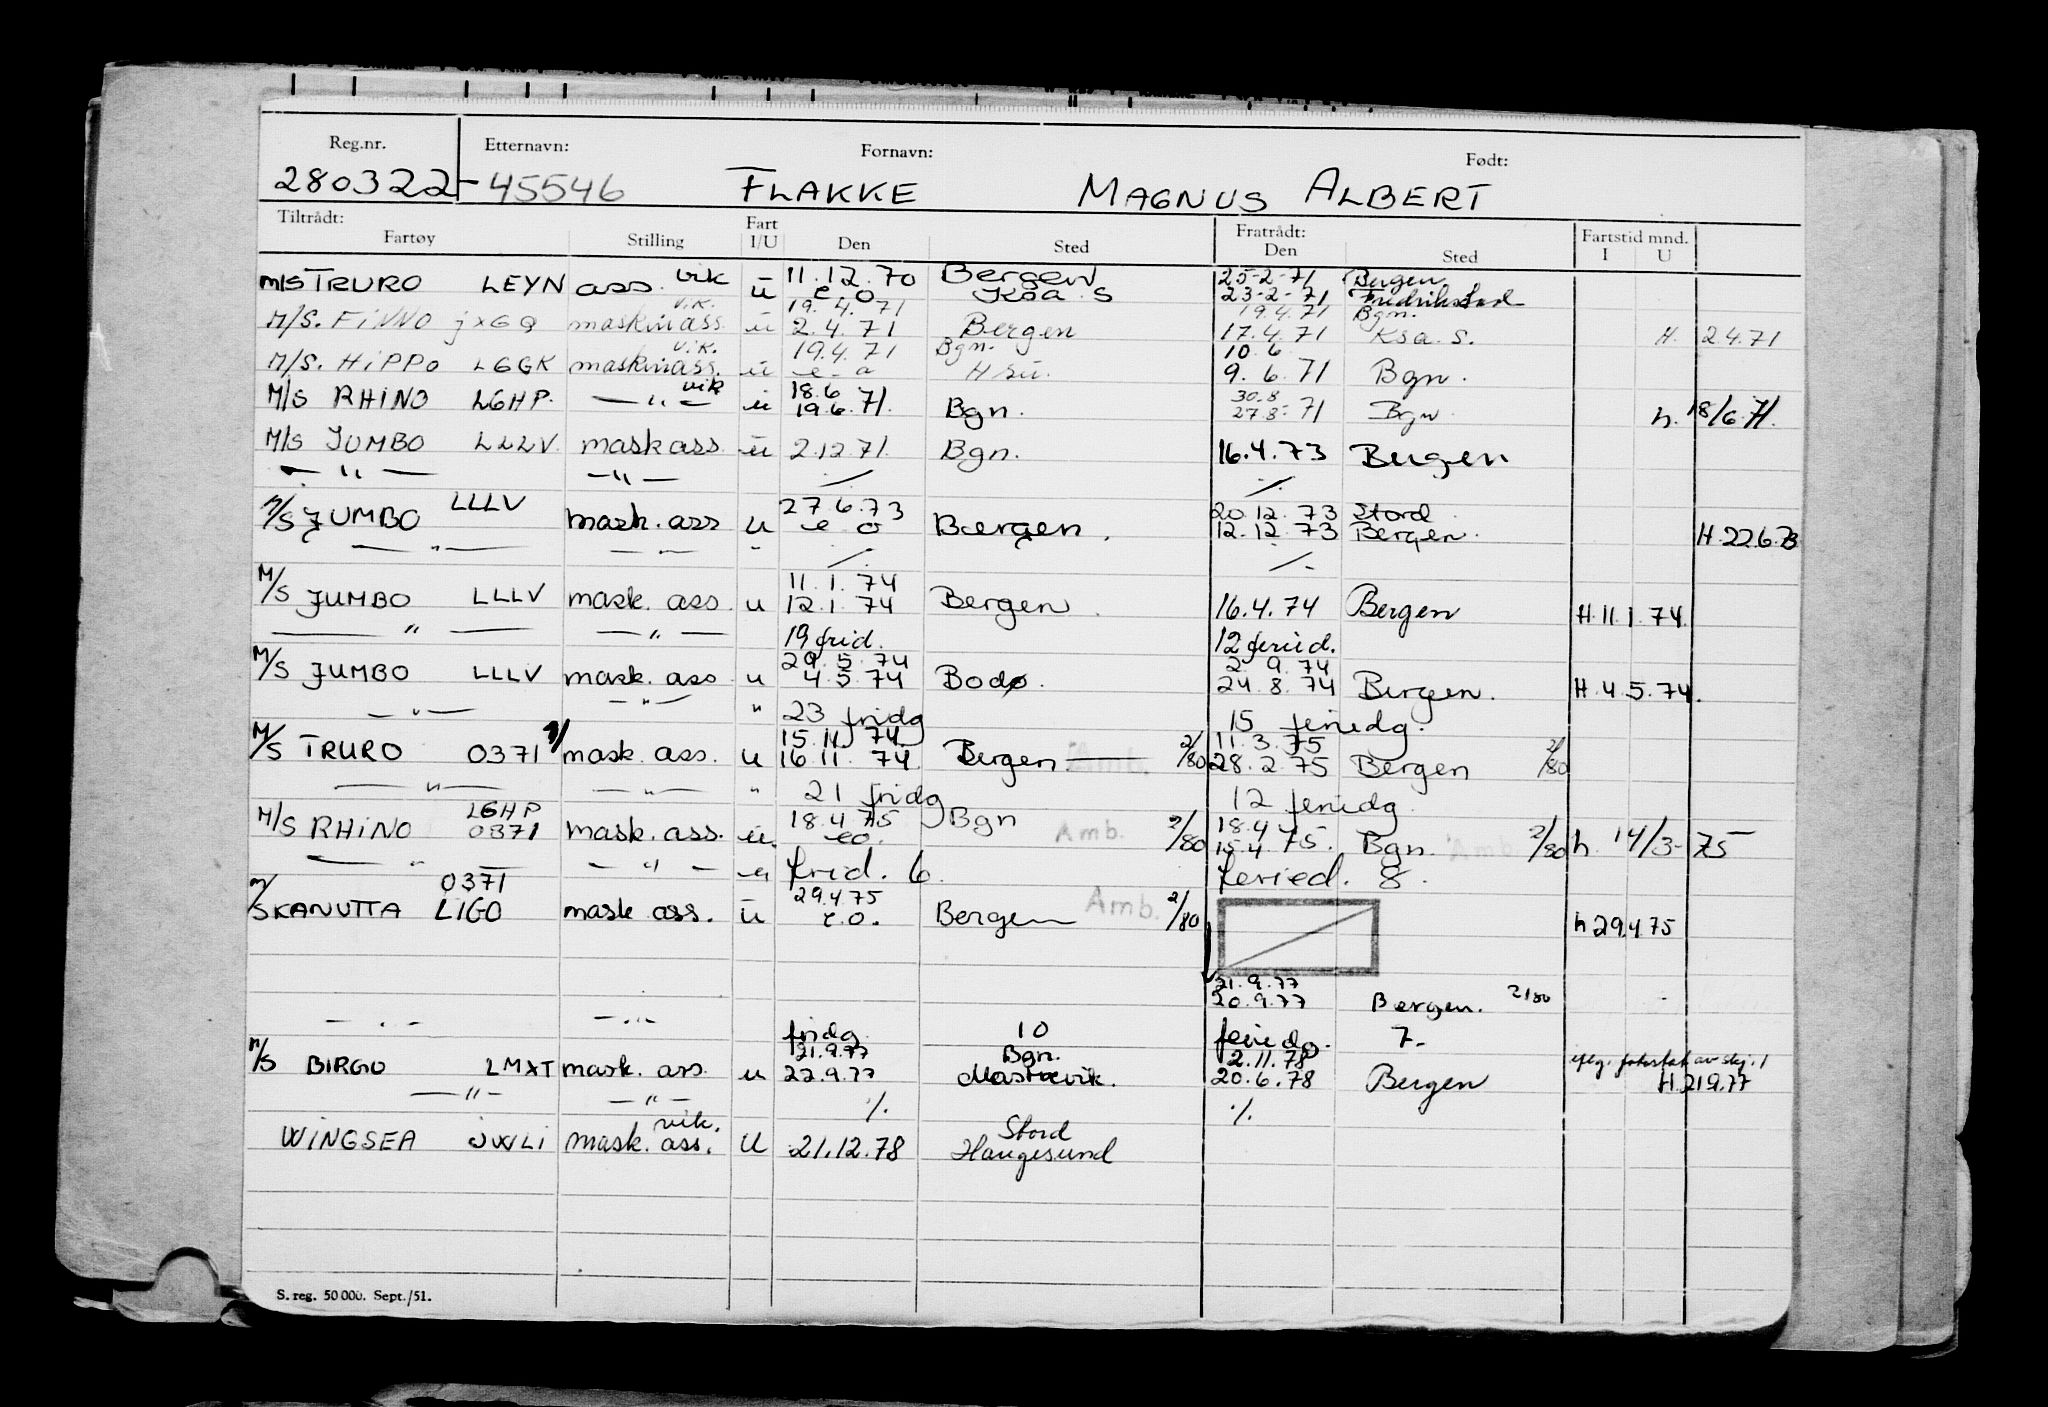 Reg.nr. Etternavn: Fornavn: Født:
280322-45546 FLAKKE MAGNUS ALBERT
Tiltrådt: Fart Fratrådt: Fartstid mnd.
Fartøy Stilling I/U Den Sted Den Sted I U
vik 11.12.70 Bergen 25-2-71 Bergen
M/S TRURO LEYN ass. u e o Ksa. S 23-2-71 Fredrikstad
v.k. 19.4.71 19.4.71 Bgn.
M/S. FINNO jxGQ maskinass. u 2.4.71 Bergen 17.4.71 Ksa. S. H. 2.4.71
v.k. 19.4.71 Bgn. 10.6
M/S. HIPPO LGGK maskinass. u e-o 9.6.71 Bgn.
vik 18.6 30.8
M/S RHINO LGHP. — " — u 19.6.71. Bgn. 27.8-71 Bgn h. 18/6.71.
M/S JUMBO LLLV mask ass u 2.12.71. Bgn. 16.4.73 Bergen
— " — — " — ./. ./.
LLLV 27.6.73 20.12.73 Stord
M/S JUMBO mask. ass u e o Bergen. 12.12.73 Bergen. H. 22.6.73
— " — — " — " ./. ./.
11.1.74
M/S JUMBO LLLV mask. ass. u 12.1.74 Bergen. 16.4.74 Bergen H. 11.1.74.
— " — — " — 19 frid. 12 feried.
29.5.74 2.9.74
M/S JUMBO LLLV mask. ass u 4.5.74 Bodø. 24.8.74 Bergen. H. 4.5.74.
— " — — " — " 23 fridg 15 feriedg.
15.11.74 11.3.75
M/S TRURO 0371 mask. ass. u 16.11.74. Bergen Amb. 2/80 28.2.75 Bergen 2/80
— " — — " — " 21 fridg 12 feriedg
LGHP 18.4.75 Bgn 18.4
M/S RHINO 0371 mask. ass. u. eo. Amb. 2/80 15.4 75. Bgn. Amb. 2/80 h. 14/3-75
— " — — " — u frid. 6. feried. 8.
0371 29.4.75
M/S KANUTTA LIGO mask ass. u e.o. Bergen Amb. 2/80 h 29.4.75
21.9.77
20.9.77 Bergen. 2/80
— " — — " — fridg. 10 feriedg. 7.-
21.9.77 Bgn. 2.11.78 av skj. 1
M/S BIRGO LMXT mask. ass. u 22.9.77 Mastrevik. 20.6.78 Bergen H. 21.9.77
— " — — " — ./. ./.
vik. Stord
WINGSEA JWLI mask. ass. U 21.12.78 Haugesund
S. reg. 50 000. Sept./51.